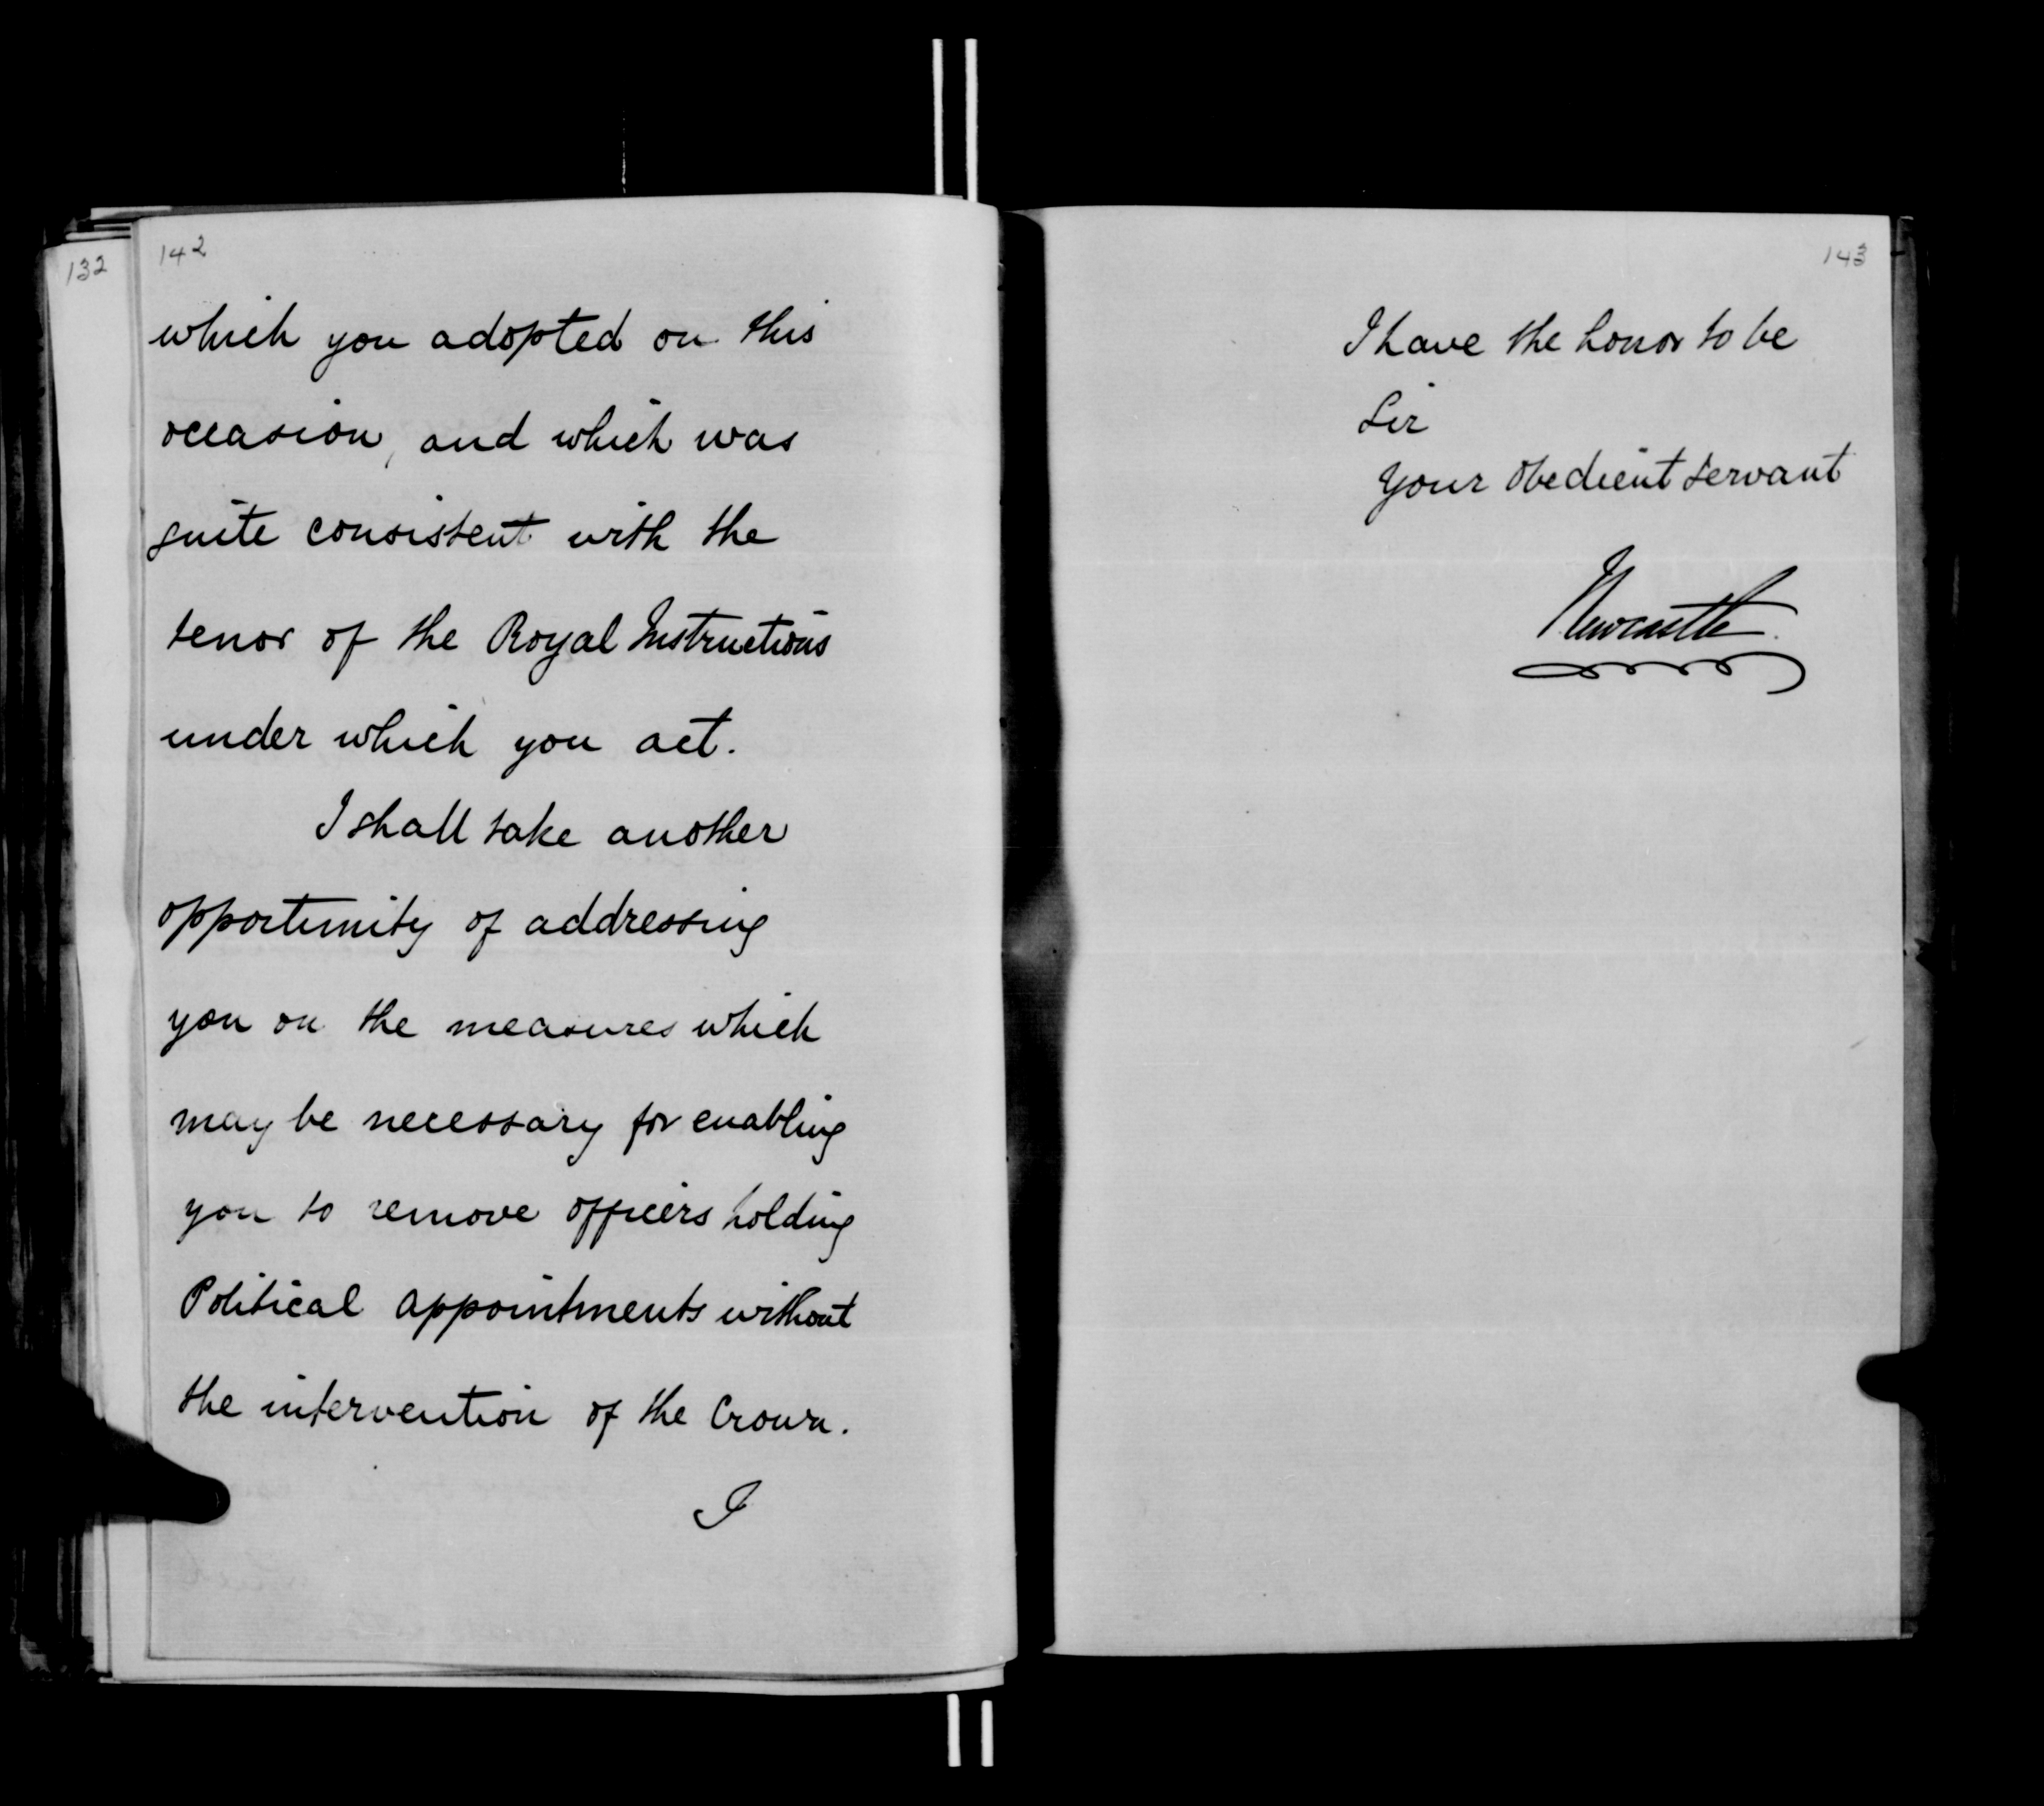 132
142
which you adopted on this
occasion, and which was
quite consistent with the
tenor of the Royal Instructions
under which you act.
I shall take another
opportunity of addressing
you on the measures which
may be necessary for enabling
you to remove officers holding
Political appointments without
the intervention of the Crown.
I
143
I have the honor to be
Sir
Your obedient servant
Newcastle